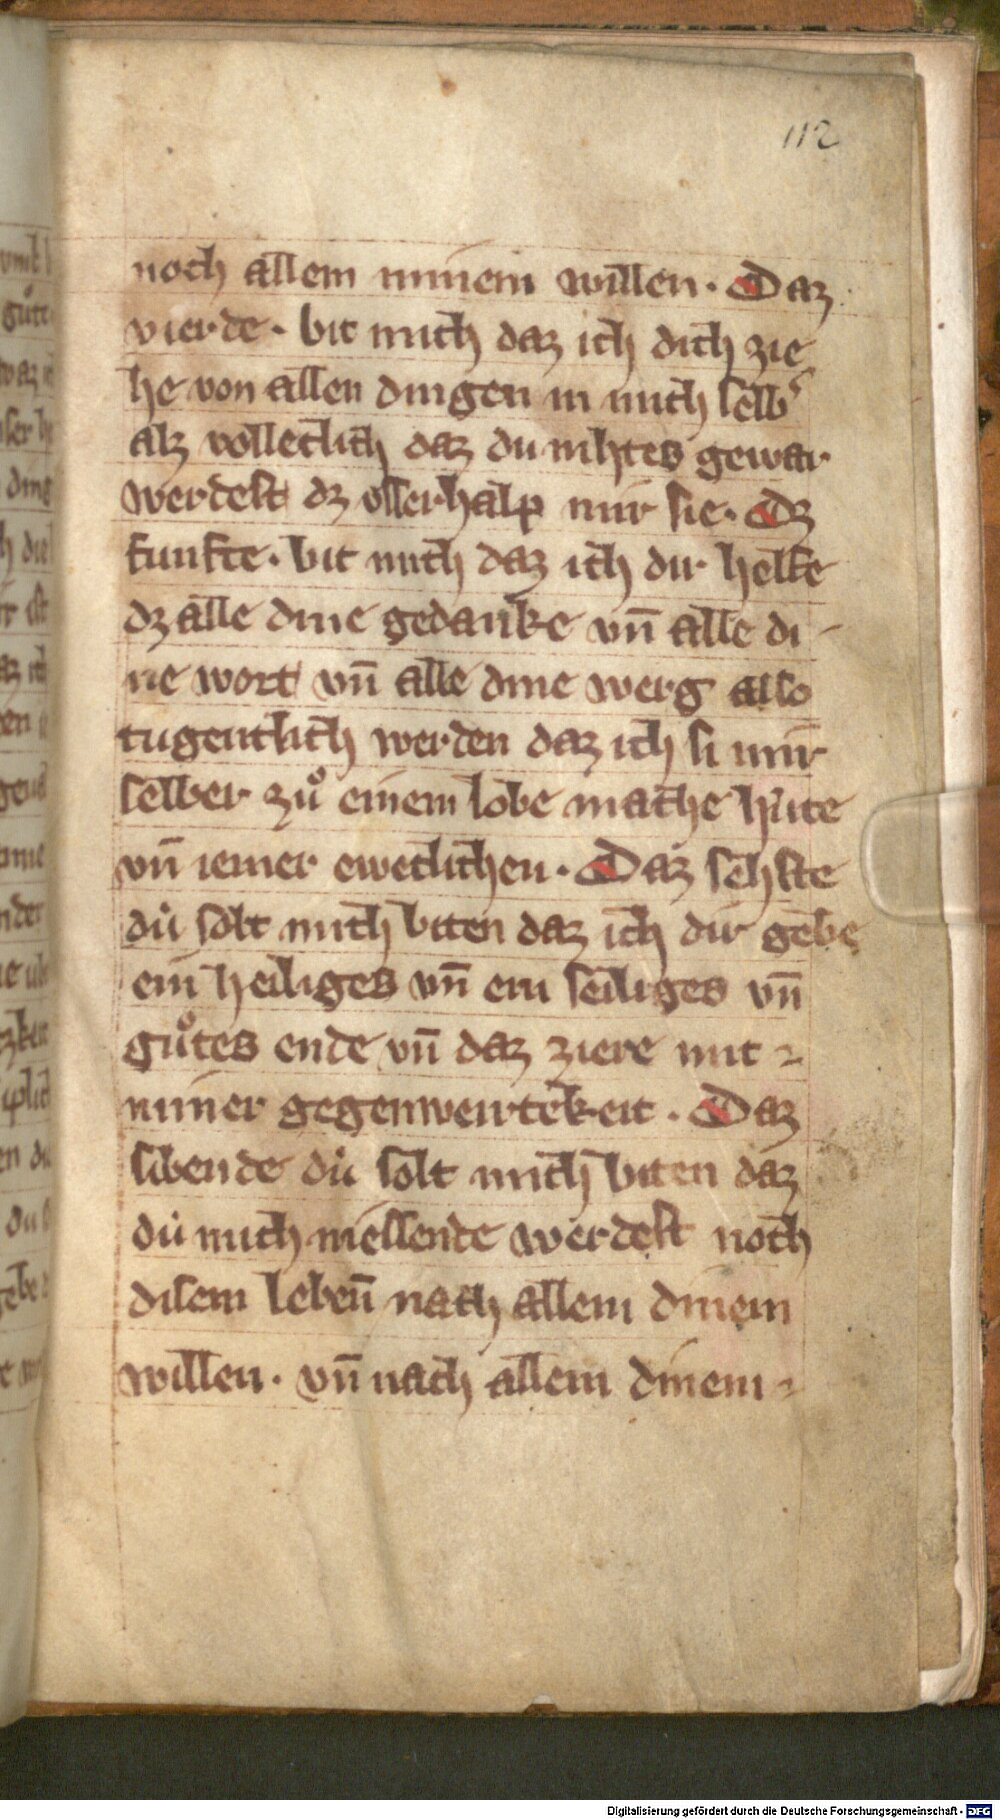 112
noch allem minem willen. Daz
vierde. bit mich daz ich dich zie
he von allen dingen in mich selbͤ
alz volleclich daz du nihtes gewar
werdest dz vsserhalp mir sie. Dz
funfte. bit mich daz ich dir helfe
dz alle dine gedanke vn̄ alle di-
ne wort vn̄ alle dine werg also
tugentlich werden daz ich si mir
selber zuͦ einem lobe mache hute
vn̄ iemer eweclichen. Daz sehste
du solt mich biten daz ich dir gebe
ein heiliges vn̄ ein seiliges vn̄
guͦtes ende vn̄ daz ziere mit
miner gegenweirtekeit. Daz
sibende du solt mich biten daz
du mich niessende werdest noch
disem lebēn nach allem dinem
willen. vn̄ nach allem dinem
Digitalisierung gefördert durch die Deutsche Forschungsgemeinschaft - DFG